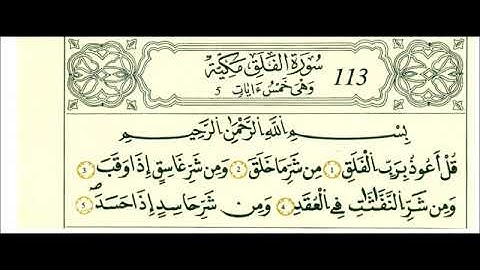 سُورَةُ الْفَلَقِ مَكِّيَّةٌ
113
وَهِىَ خَمْسُ ءَايَاتٍ 5
بِسْمِ اللَّهِ الرَّحْمَٰنِ الرَّحِيمِ
قُلْ أَعُوذُ بِرَبِّ الْفَلَقِ ١ مِن شَرِّ مَا خَلَقَ ٢ وَمِن شَرِّ غَاسِقٍ إِذَا وَقَبَ ٣
وَمِن شَرِّ النَّفَّاثَاتِ فِى الْعُقَدِ ٤ وَمِن شَرِّ حَاسِدٍ إِذَا حَسَدَ ٥